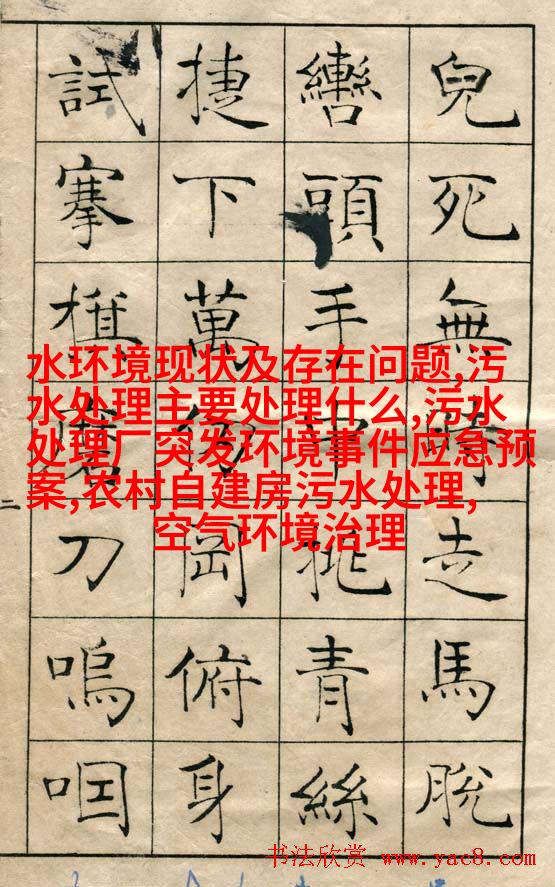 兒死無時走馬脫
轡頭手中挑青絲
捷下萬仞岡俯身
試搴旗磨刀嗚咽
二
水环境现状及存在问题,污
水处理主要处理什么,污水
处理厂突发环境事件应急预
案,农村自建房污水处理,
空气环境治理
书法欣赏 www.yac8.com